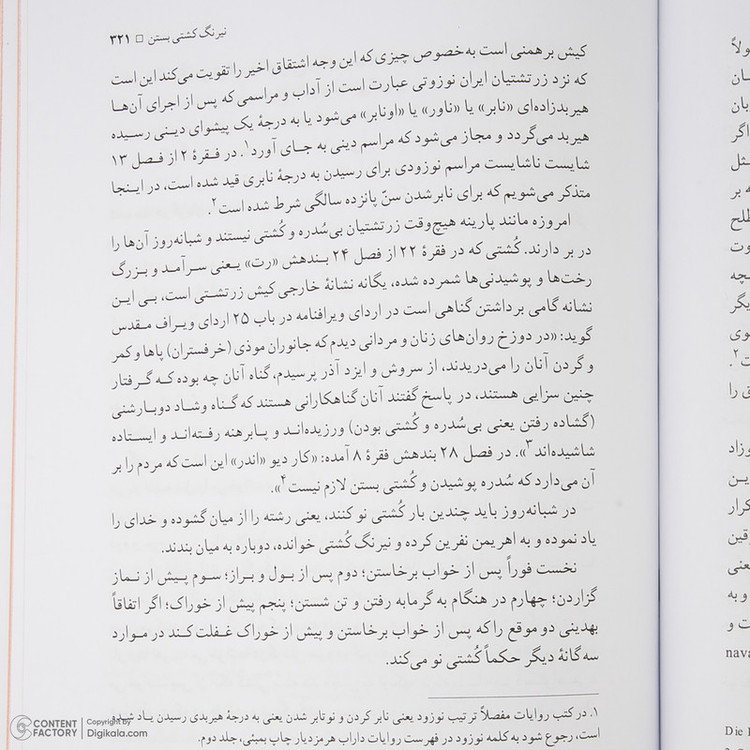 نیرنگ کشتی بستن □ ۳۲۱
کیش برهمنی است به‌خصوص چیزی که این وجه اشتقاق اخیر را تقویت می‌کند این است
که نزد زرتشتیان ایران نوزوتی عبارت است از آداب و مراسمی که پس از اجرای آن‌ها
هیربدزاده‌ای «نابر» یا «ناور» یا «اونابر» می‌شود یا به درجهٔ یک پیشوای دینی رسیده
هیربد می‌گردد و مجاز می‌شود که مراسم دینی به جای آورد۱. در فقرهٔ ۲ از فصل ۱۳
شایست ناشایست مراسم نوزودی برای رسیدن به درجهٔ نابری قید شده است، در اینجا
متذکر می‌شویم که برای نابرشدن سنّ پانزده سالگی شرط شده است۲.
امروزه مانند پارینه هیچ‌وقت زرتشتیان بی‌سُدره و کُشتی نیستند و شبانه‌روز آن‌ها را
در بر دارند. کُشتی که در فقرهٔ ۲۲ از فصل ۲۴ بندهش «رت» یعنی سرآمد و بزرگ
رخت‌ها و پوشیدنی‌ها شمرده شده، یگانه نشانهٔ خارجی کیش زرتشتی است، بی این
نشانه گامی برداشتن گناهی است در اردای ویرافنامه در باب ۲۵ اردای ویراف مقدس
گوید: «در دوزخ روان‌های زنان و مردانی دیدم که جانوران موذی (خرفستران) پاها و کمر
و گردن آنان را می‌دریدند، از سروش و ایزد آذر پرسیدم، گناه آنان چه بوده که گرفتار
چنین سزایی هستند، در پاسخ گفتند آنان گناهکارانی هستند که گناه وشاد دوبارشنی
(گشاده رفتن یعنی بی‌سُدره و کُشتی بودن) ورزیده‌اند و پابرهنه رفته‌اند و ایستاده
شاشیده‌اند۳». در فصل ۲۸ بندهش فقرهٔ ۸ آمده: «کار دیو «اندر» این است که مردم را بر
آن می‌دارد که سُدره پوشیدن و کُشتی بستن لازم نیست۴».
در شبانه‌روز باید چندین بار کُشتی نو کنند، یعنی رشته را از میان گشوده و خدای را
یاد نموده و به اهریمن نفرین کرده و نیرنگ کُشتی خوانده، دوباره به میان بندند.
نخست فوراً پس از خواب برخاستن؛ دوم پس از بول و براز؛ سوم پیش از نماز
گزاردن؛ چهارم در هنگام به گرمابه رفتن و تن شستن؛ پنجم پیش از خوراک؛ اگر اتفاقاً
بهدینی دو موقع را که پس از خواب برخاستن و پیش از خوراک غفلت کند در موارد
سه‌گانهٔ دیگر حکماً کُشتی نو می‌کند.
۱. در کتب روایات مفصلاً ترتیب نوزود یعنی نابر کردن و نوتابر شدن یعنی به درجهٔ هیربدی رسیدن یاد شده
است، رجوع شود به کلمه نوزود در فهرست روایات داراب هرمزدیار چاپ بمبئی، جلد دوم.
CONTENT FACTORY
Copyright by
Digikala.com
اگر
بر
وت
یگر
ق را
وزاد
کرار
و به
nava
Die